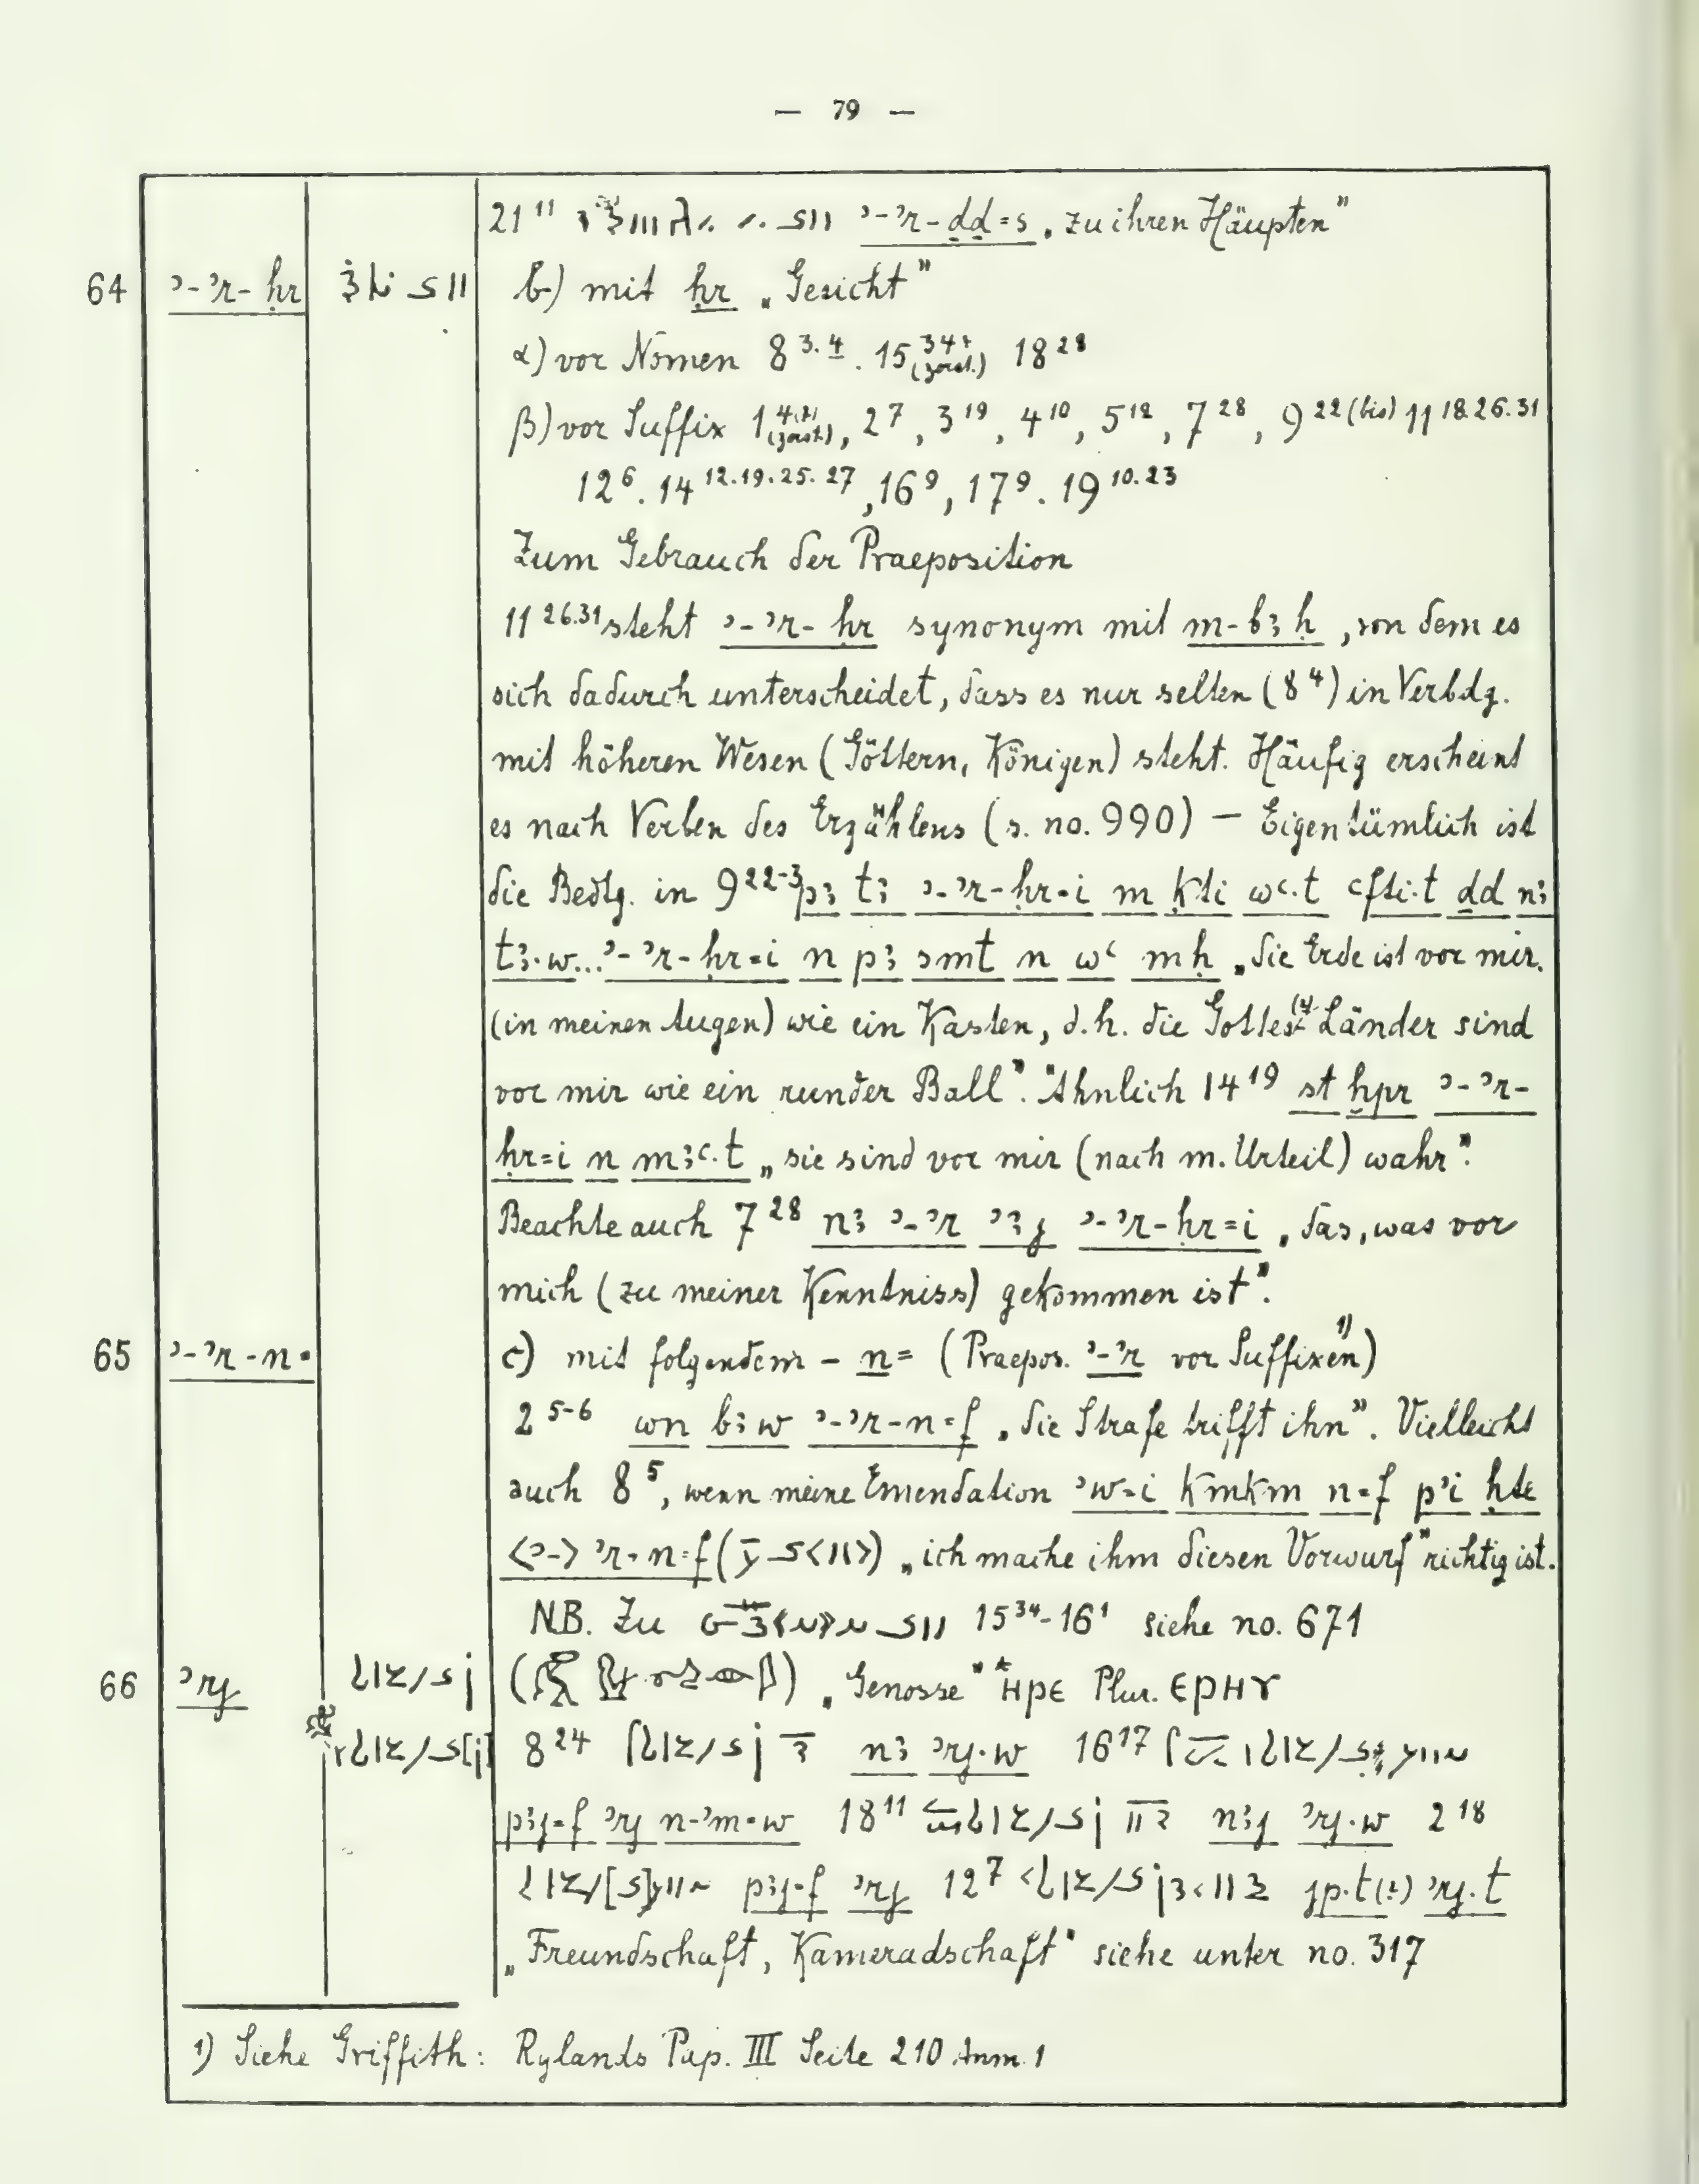 — 79 —
21 ¹¹ ꜣ-ꜣr-dd=s „zu ihren Häupten"
64 ꜣ-ꜣr-ḥr b) mit ḥr „Gesicht"
α) vor Nomen 8 ³·⁴ . 15 ³⁴ (zerst.) 18 ²⁸
β) vor Suffix 1 ⁴ (zerst.), 2 ⁷, 3 ¹⁹, 4 ¹⁰, 5 ¹², 7 ²⁸, 9 ²² (bis) 11 ¹⁸·²⁶·³¹
12 ⁶. 14 ¹²·¹⁹·²⁵·²⁷, 16 ⁹, 17 ⁹. 19 ¹⁰·²³
Zum Gebrauch der Praeposition
11 ²⁶·³¹ steht ꜣ-ꜣr-ḥr synonym mit m-bꜣḥ, von dem es
sich dadurch unterscheidet, dass es nur selten (8 ⁴) in Verbdg.
mit höheren Wesen (Göttern, Königen) steht. Häufig erscheint
es nach Verben des Erzählens (s. no. 990) — Eigentümlich ist
die Bedtg. in 9 ²²⁻³ pꜣ tꜣ ꜣ-ꜣr-ḥr=i m ḳti wꜥ.t ꜥfti.t ḏd nꜣ
tꜣ.w... ꜣ-ꜣr-ḥr=i n pꜣ smt n wꜥ mḥ „die Erde ist vor mir
(in meinen Augen) wie ein Kasten, d.h. die Gottes(?)-Länder sind
vor mir wie ein runder Ball". Ähnlich 14 ¹⁹ st ḫpr ꜣ-ꜣr-
ḥr=i n mꜣꜥ.t „sie sind vor mir (nach m. Urteil) wahr".
Beachte auch 7 ²⁸ nꜣ ꜣ-ꜣr ꜣꜣj ꜣ-ꜣr-ḥr=i „das, was vor
mich (zu meiner Kenntniss) gekommen ist".
65 ꜣ-ꜣr-n= c) mit folgendem -n= (Praepos. ꜣ-ꜣr vor Suffixen ¹⁾)
2 ⁵⁻⁶ wn bꜣw ꜣ-ꜣr-n=f „die Strafe trifft ihn". Vielleicht
auch 8 ⁵, wenn meine Emendation ꜣw=i kmkm n=f pꜣi ḥte
<ꜣ-> ꜣr-n=f „ich mache ihm diesen Vorwurf" richtig ist.
N.B. Zu 15 ³⁴-16 ¹ siehe no. 671
66 ꜣrj „Genosse" *ⲏⲣⲉ Plur. ⲉⲣⲏⲩ
8 ²⁴ nꜣ ꜣrj.w 16 ¹⁷
pꜣj=f ꜣrj n-ꜣm=w 18 ¹¹ nꜣj ꜣrj.w 2 ¹⁸
pꜣj=f ꜣrj 12 ⁷ jp.t(?) ꜣrj.t
„Freundschaft, Kameradschaft" siehe unter no. 317
1) Siehe Griffith: Rylands Pap. III Seite 210 Anm. 1